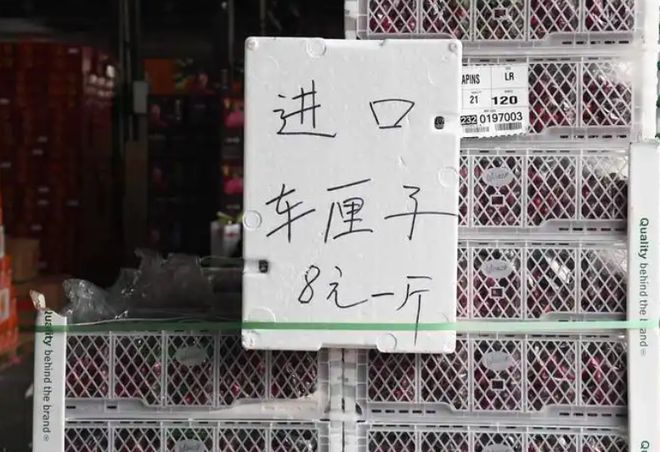 进口
车厘子
8元一斤
APINS LR
21 120
232 0197003
Quality behind the brand
Quality behind the b
uality behind the brand